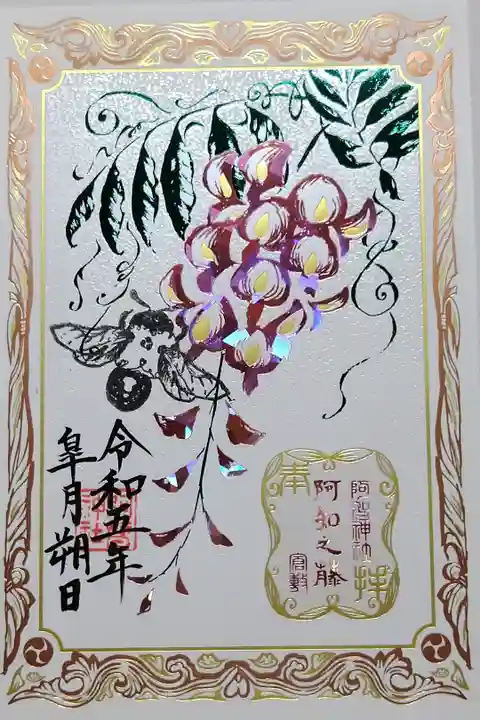 奉拝
阿智神社
阿知之藤
倉敷
令和五年
皐月朔日